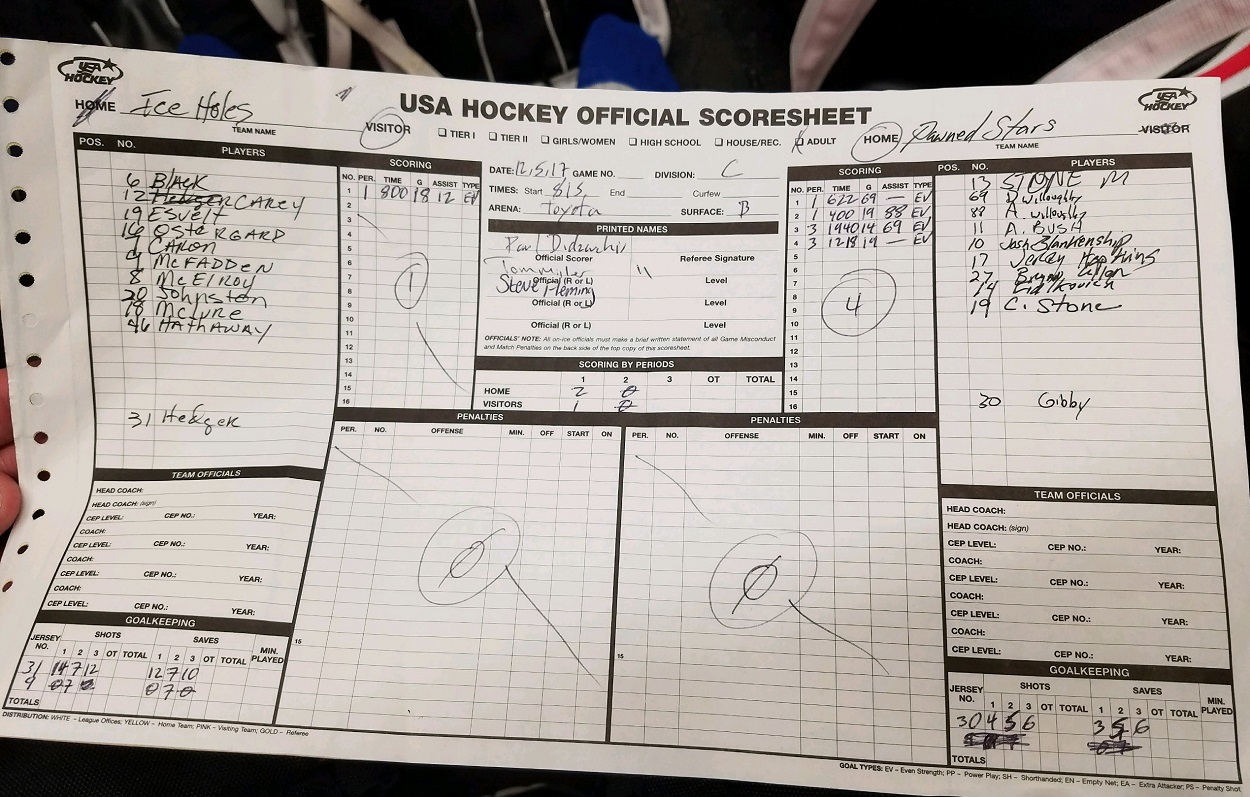 USA HOCKEY
USA HOCKEY
USA HOCKEY OFFICIAL SCORESHEET
HOME Ice Holes
TEAM NAME
VISITOR
TIER I TIER II GIRLS/WOMEN HIGH SCHOOL HOUSE/REC. ADULT
HOME Pawned Stars
TEAM NAME
VISITOR
POS. NO. PLAYERS
6 Black
12 CAREY
19 Esvelt
16 OSTERGARD
7 CARON
9 McFADDEN
8 McElroy
20 Johnston
18 McLURE
46 HATHAWAY
31 Hedger
SCORING
NO. PER. TIME G ASSIST TYPE
1 1 800 18 12 EV
2
3
4
5
6
7
8
9
10
11
12
13
14
15
16
1
DATE: 12,5,17 GAME NO. DIVISION: C
TIMES: Start 815 End Curfew
ARENA: Toyota SURFACE: B
PRINTED NAMES
Official Scorer Referee Signature
Tom Miller
Official (R or L) Level
Steve Fleming
Official (R or L) Level
Official (R or L) Level
OFFICIALS' NOTE: All on-ice officials must make a brief written statement of all Game Misconduct
and Match Penalties on the back side of the top copy of this scoresheet.
SCORING BY PERIODS
1 2 3 OT TOTAL
HOME 2 0
VISITORS 1 0
SCORING
NO. PER. TIME G ASSIST TYPE
1 1 622 69 — EV
2 1 400 19 88 EV
3 3 1940 14 69 EV
4 3 1218 19 — EV
5
6
7
8
9
10
11
12
13
14
15
16
4
POS. NO. PLAYERS
13 STONE M
69 D. Willoughby
88 A. Willoughby
11 A. BUSH
10 Josh Blankenship
17 Jerley Hopkins
27 Bryan
14
19 C. Stone
30 Gibby
PENALTIES
PER. NO. OFFENSE MIN. OFF START ON
0
15
PENALTIES
PER. NO. OFFENSE MIN. OFF START ON
0
15
TEAM OFFICIALS
HEAD COACH:
HEAD COACH: (sign)
CEP LEVEL: CEP NO.: YEAR:
COACH:
CEP LEVEL: CEP NO.: YEAR:
COACH:
CEP LEVEL: CEP NO.: YEAR:
COACH:
CEP LEVEL: CEP NO.: YEAR:
GOALKEEPING
JERSEY NO. SHOTS SAVES MIN. PLAYED
1 2 3 OT TOTAL 1 2 3 OT TOTAL
31 14 7 12 12 7 10
9 0 7 0 7 0
TOTALS
TEAM OFFICIALS
HEAD COACH:
HEAD COACH: (sign)
CEP LEVEL: CEP NO.: YEAR:
COACH:
CEP LEVEL: CEP NO.: YEAR:
COACH:
CEP LEVEL: CEP NO.: YEAR:
COACH:
CEP LEVEL: CEP NO.: YEAR:
GOALKEEPING
JERSEY NO. SHOTS SAVES MIN. PLAYED
1 2 3 OT TOTAL 1 2 3 OT TOTAL
30 4 5 6 3 5 6
TOTALS
DISTRIBUTION: WHITE – League Offices; YELLOW – Home Team; PINK – Visiting Team; GOLD – Referee
GOAL TYPES: EV – Even Strength; PP – Power Play; SH – Shorthanded; EN – Empty Net; EA – Extra Attacker; PS – Penalty Shot